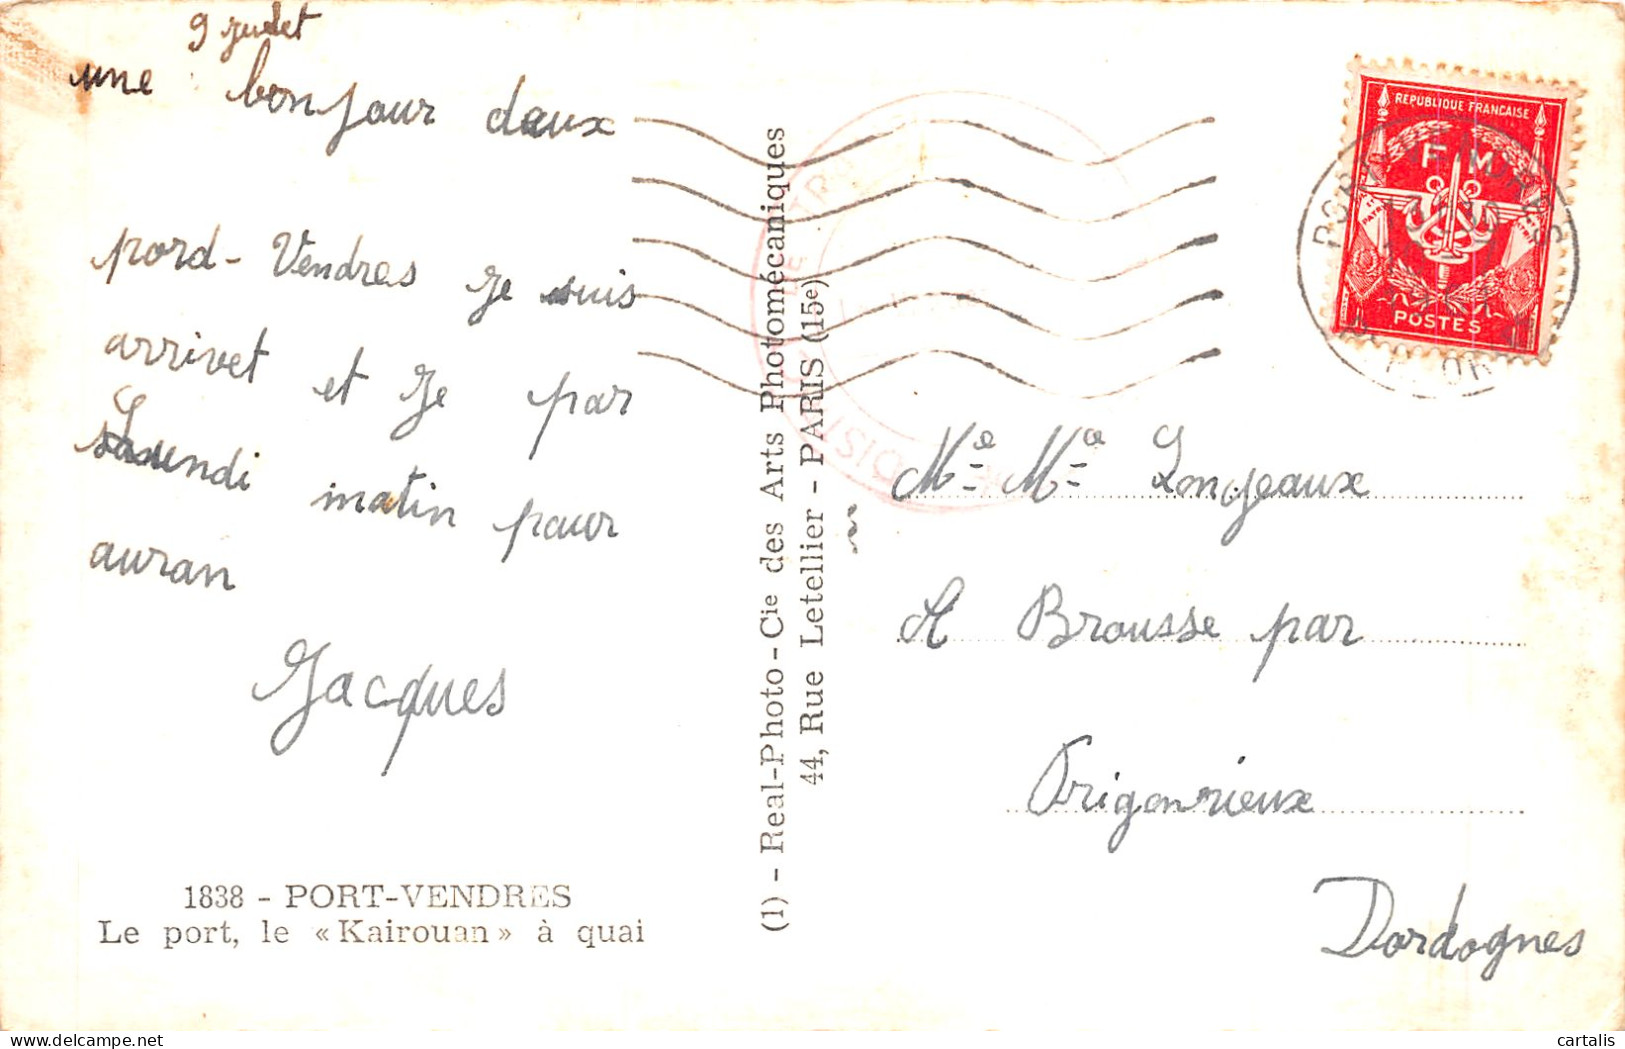 9 juilet
une bonjour deaux
pord-Vendres Je suis
arrivet et Je par
Lundi matin pour
auran
Jacques
1838 - PORT-VENDRES
Le port, le « Kairouan » à quai
(1) - Real-Photo-Cie des Arts Photomécaniques
44, Rue Letellier - PARIS (15e)
RÉPUBLIQUE FRANÇAISE
F M
POSTES
Me Me Longeaux
A Brousse par
Prigonrieux
Dordognes
cartalis